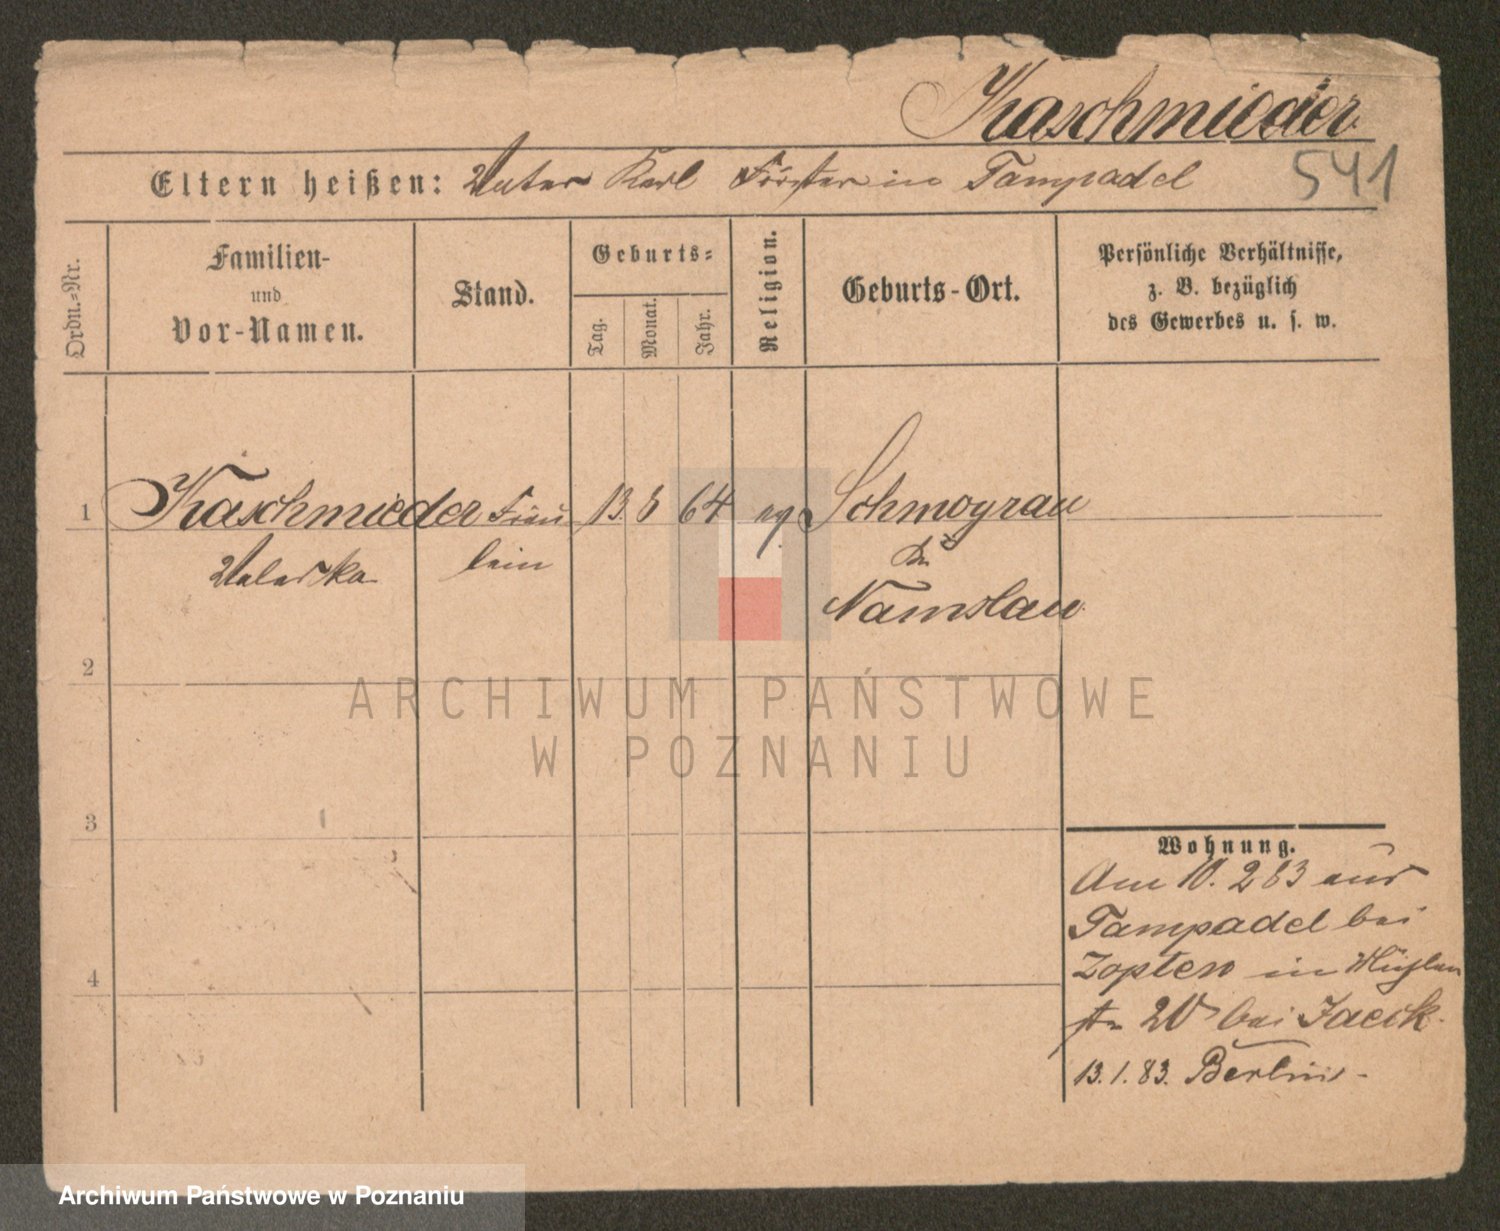 Kaschmieder
541
Eltern heißen: Vater Karl Förster in Tampadel
Ordn.-Nr.
Familien-
und
Vor-Namen.
Stand.
Geburts-
Tag.
Monat.
Jahr.
Religion.
Geburts-Ort.
Persönliche Verhältnisse,
z. B. bezüglich
des Gewerbes u. s. w.
1 Kaschmieder Fräu 13. 64 Schmograu
Valeska lein
Namslau
2
3
4
ARCHIWUM PAŃSTWOWE
W POZNANIU
Wohnung.
Am 10. 2 83 aus
Tampadel bei
Zopten in Mühlen
str 20 bei Jaeck.
13.1.83. Berlin
Archiwum Państwowe w Poznaniu